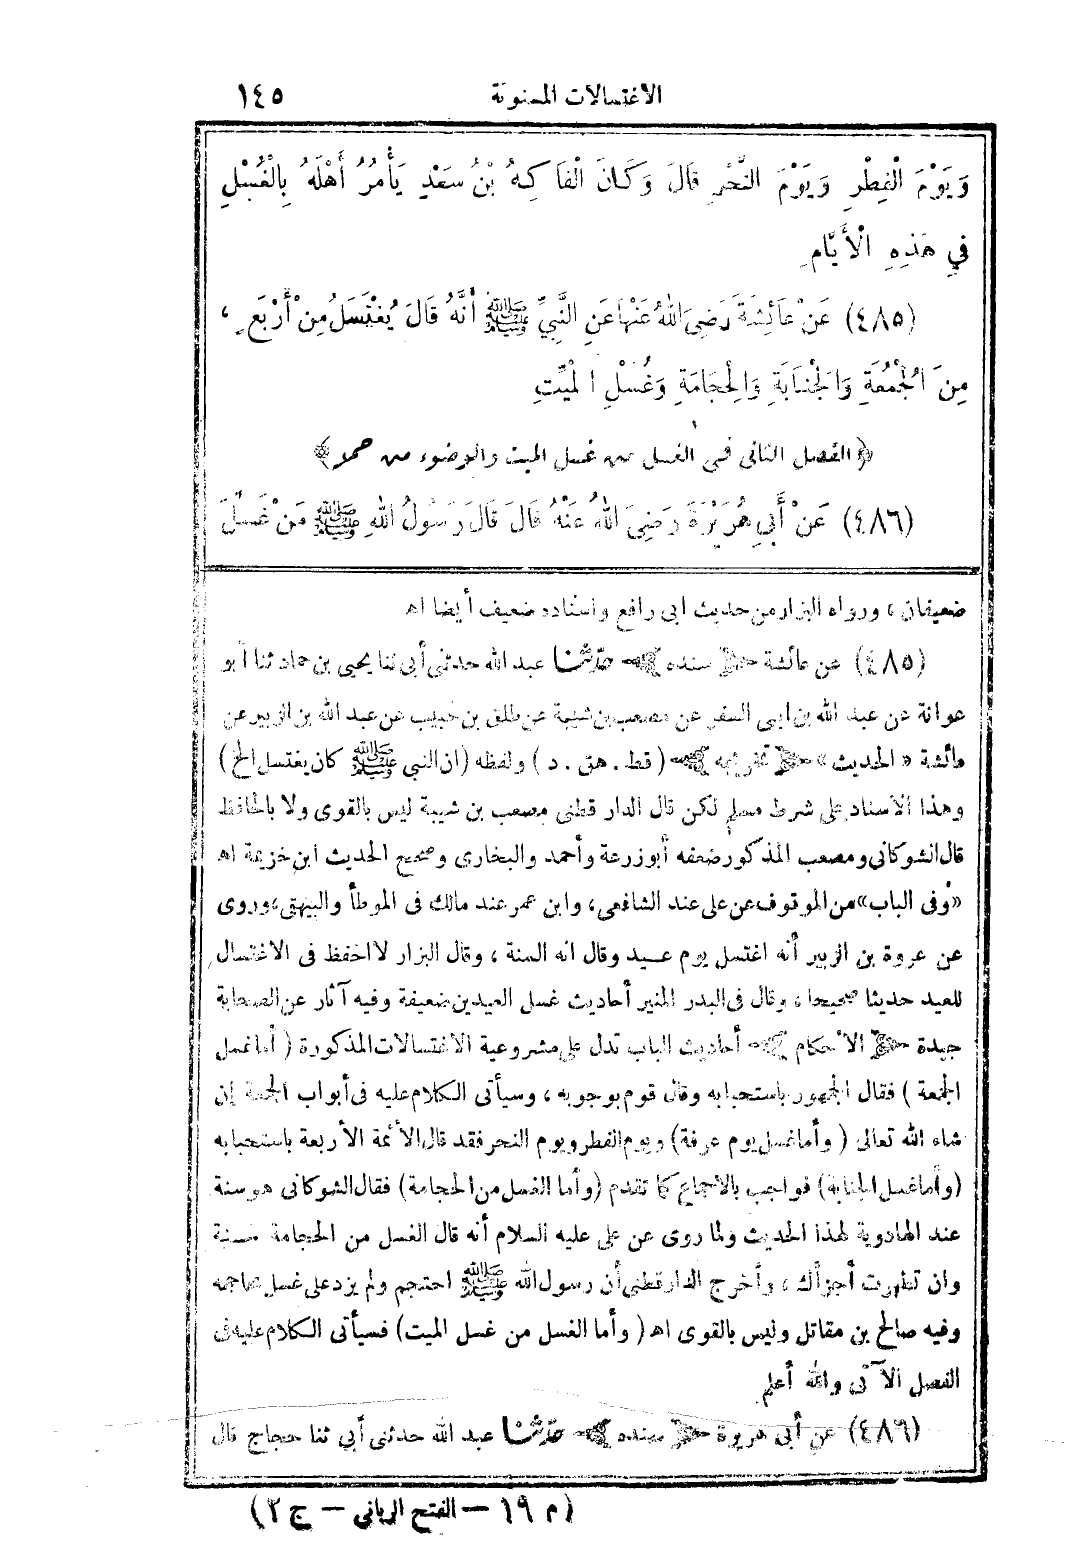 الاغتسالات المسنونة ١٤٥
وَيَوْمَ الْفِطْرِ وَيَوْمَ النَّحْرِ قَالَ وَكَانَ الْفَاكِهُ بْنُ سَعْدٍ يَأْمُرُ أَهْلَهُ بِالْغُسْلِ
فِي هَذِهِ الْأَيَّامِ
(٤٨٥) عَنْ عَائِشَةَ رَضِيَ اللهُ عَنْهَا عَنِ النَّبِيِّ ﷺ أَنَّهُ قَالَ يُغْتَسَلُ مِنْ أَرْبَعٍ ،
مِنَ الْجُمُعَةِ وَالْجَنَابَةِ وَالْحِجَامَةِ وَغُسْلِ الْمَيِّتِ
﴿ الفصل الثانى فى الغسل من غسل الميت والوضوء من حمله ﴾
(٤٨٦) عَنْ أَبِي هُرَيْرَةَ رَضِيَ اللهُ عَنْهُ قَالَ قَالَ رَسُولُ اللهِ ﷺ مَنْ غَسَّلَ
ضعيفان ، ورواه البزار من حديث ابى رافع واسناده ضعيف أيضا اه
(٤٨٥) عن عائشة ﴿ سنده ﴾ حدّثنا عبد الله حدثنى أبى ثنا يحيى بن حماد ثنا أبو
عوانة عن عبد الله بن ابى السفر عن مصعب بن شيبة عن طلق بن حبيب عن عبد الله بن الزبير عن
عائشة « الحديث » ﴿ تخريجه ﴾ ( قط . هق . د ) ولفظه (ان النبى ﷺ كان يغتسل الخ )
وهذا الأسناد على شرط مسلم لكن قال الدار قطنى مصعب بن شيبة ليس بالقوى ولا بالحافظ
قال الشوكانى ومصعب المذكور ضعفه أبو زرعة وأحمد والبخارى وصحح الحديث ابن خزيمة اه
«وفى الباب» من الموقوف عن على عند الشافعى ، وابن عمر عند مالك فى الموطأ والبيهقى ، وروى
عن عروة بن الزبير أنه اغتسل يوم عيد وقال انه السنة ، وقال البزار لا احفظ فى الاغتسال
للعيد حديثا صحيحا ، وقال فى البدر المنير أحاديث غسل العيدين ضعيفة وفيه آثار عن الصحابة
جيدة ﴿ الاحكام ﴾ أحاديث الباب تدل على مشروعية الاغتسالات المذكورة ( أما غسل
الجمعة ) فقال الجمهور باستحبابه وقال قوم بوجوبه ، وسيأتى الكلام عليه فى أبواب الجمعة إن
شاء الله تعالى ( وأما غسل يوم عرفة) ويوم الفطر ويوم النحر فقد قال الأئمة الأربعة باستحبابه
(وأما غسل الجنابة) فواجب بالاجماع كما تقدم (وأما الغسل من الحجامة) فقال الشوكانى هو سنة
عند الهادوية لهذا الحديث ولما روى عن على عليه السلام أنه قال الغسل من الحجامة سنة
وان تطهرت أجزأك ، وأخرج الدار قطنى أن رسول الله ﷺ احتجم ولم يزد على غسل محاجمه
وفيه صالح بن مقاتل وليس بالقوى اه ( وأما الغسل من غسل الميت) فسيأتى الكلام عليه فى
الفصل الآتى والله أعلم
(٤٨٦) عن أبى هريرة ﴿ سنده ﴾ حدّثنا عبد الله حدثنى أبي ثنا حجاج قال
(م ١٩ — الفتح الربانى — ج ٢)